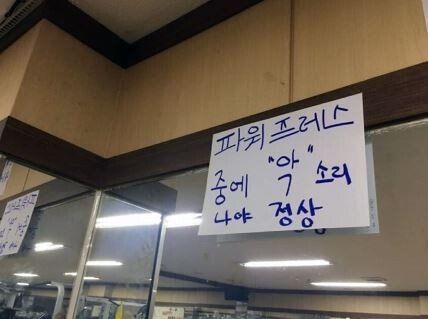 파워프레스
중에 "악" 소리
나야 정상